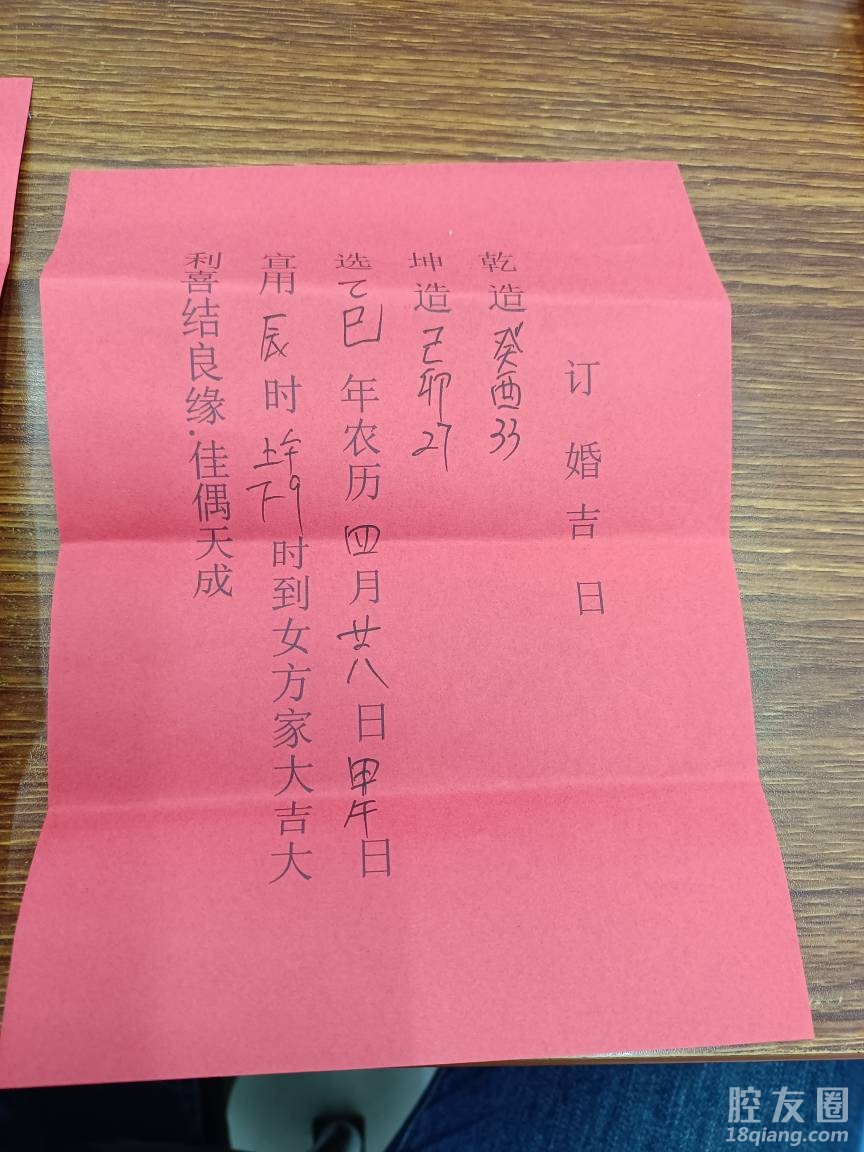 订婚吉日
乾造癸酉33
坤造己卯27
选乙巳年农历四月廿八日甲午日
宜用辰时上午下9时到女方家大吉大
利喜结良缘.佳偶天成
腔友圈
18qiang.com